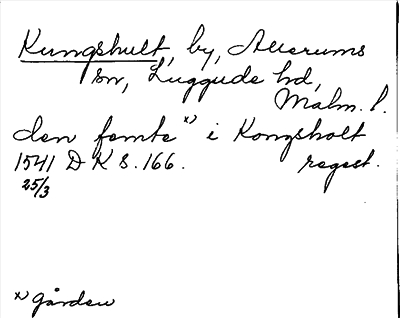 Kungshult, by, Allerums
sn, Luggude hd,
Malm. l.
den femte x) i Kongsholt
1541 D K S. 166. regest.
25/3
x) gården